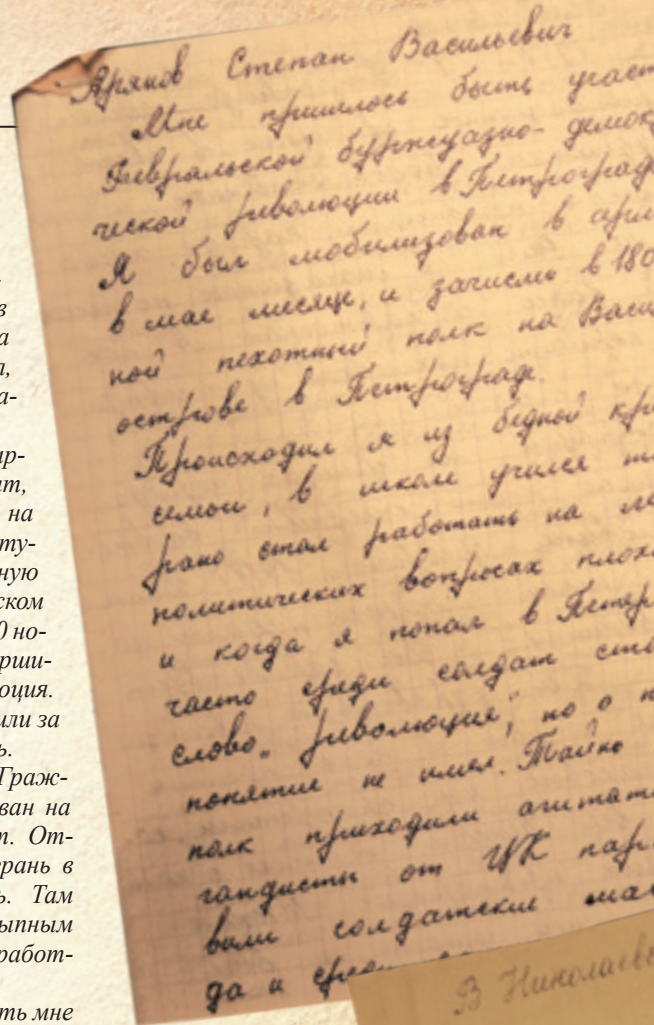 в
а
а-
ир-
ат,
на
ту-
ную
ском
0 но-
рши-
юция.
или за
ь.
Граж-
ван на
т. От-
ерань в
ь. Там
ыпным
работ-
ть мне
Степан Васильевич
Мне пришлось быть участ
Февральской буржуазно-демокр
ческой революции в Петрограде
Я был мобилизован в арм
в мае месяце, и зачислен в 180
ной пехотный полк на Васил
острове в Петрограде.
Происходил я из бедной кр
семьи, в школе учился
рано стал работать на
политических вопросах плохо
и когда я попал в Петер
часто среди солдат
слово „революция“, но о
понятие не имел. Тайно
полк приходили агитат
гандисты от ЦК пар
вили солдатские
да и среди
В Николаев